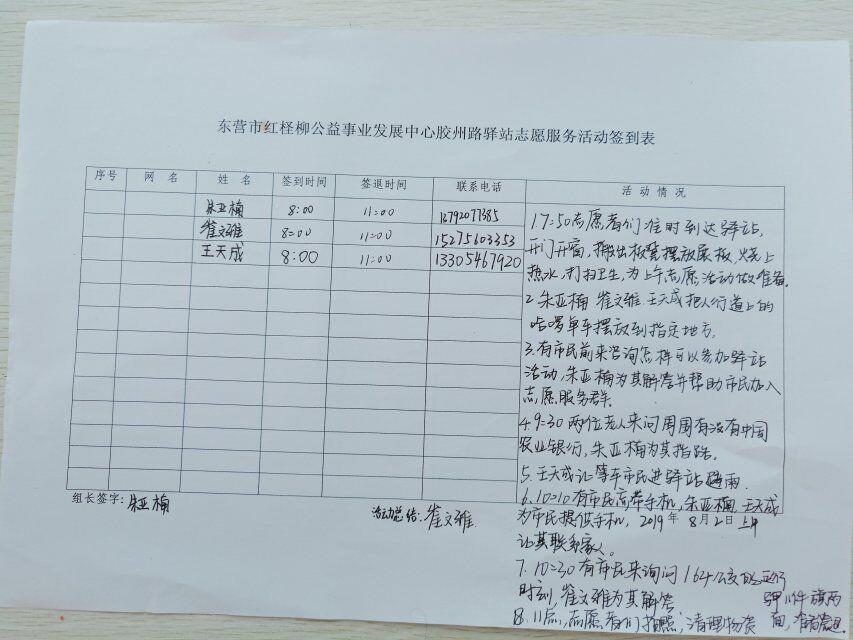 东营市红柽柳公益事业发展中心胶州路驿站志愿服务活动签到表
序号 网 名 姓 名 签到时间 签退时间 联系电话 活 动 情 况
朱亚楠 8:00 11:00 13792077385
崔文雅 8:00 11:00 15275603353
王天成 8:00 11:00 13305467920
1.7:50志愿者们准时到达驿站,
开门开窗,搬出板凳摆放展板,烧上
热水,打扫卫生,为上午志愿活动做准备.
2.朱亚楠 崔文雅 王天成把人行道上的
哈啰单车摆放到指定地方.
3.有市民前来咨询怎样可以参加驿站
活动,朱亚楠为其解答并帮助市民加入
志愿服务群.
4.9:30 两位老人来问周围有没有中国
农业银行,朱亚楠为其指路.
5.王天成让等车市民进驿站避雨.
6.10:10有市民忘带手机,朱亚楠.王天成
为市民提供手机,
让其联系家人.
7.10:30有市民来询问164公交的
时刻,崔文雅为其解答
8.11点,志愿者们拍照,清理物资
组长签字:朱亚楠
活动总结:崔文雅
2019年8月2日上午